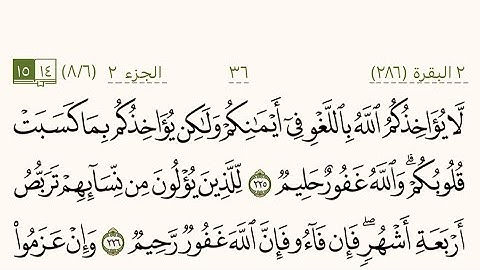 ٢ البقرة (٢٨٦) ٣٦ الجزء ٢ (٨/٦) ١٤ ١٥
لَّا يُؤَاخِذُكُمُ ٱللَّهُ بِٱللَّغْوِ فِىٓ أَيْمَـٰنِكُمْ وَلَـٰكِن يُؤَاخِذُكُم بِمَا كَسَبَتْ
قُلُوبُكُمْ ۗ وَٱللَّهُ غَفُورٌ حَلِيمٌ ٢٢٥ لِّلَّذِينَ يُؤْلُونَ مِن نِّسَآئِهِمْ تَرَبُّصُ
أَرْبَعَةِ أَشْهُرٍ ۖ فَإِن فَآءُو فَإِنَّ ٱللَّهَ غَفُورٌ رَّحِيمٌ ٢٢٦ وَإِنْ عَزَمُوا۟